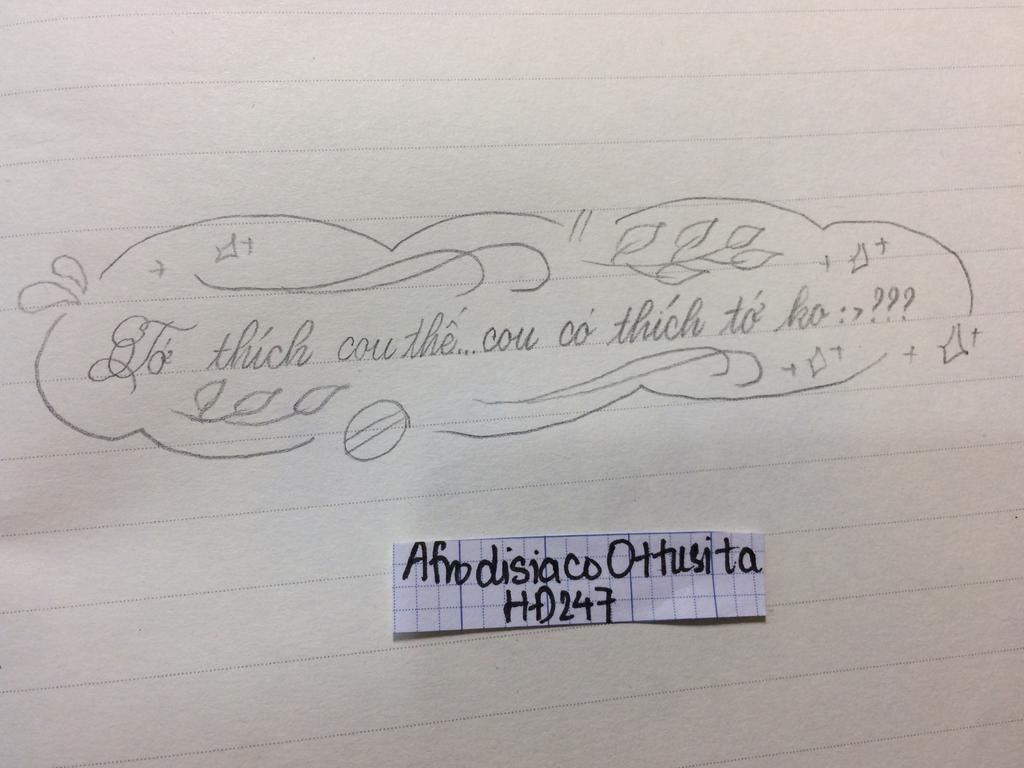 Tớ thích cou thế...cou có thích tớ ko:>???
Afrodisiaco Ottusita
HĐ247